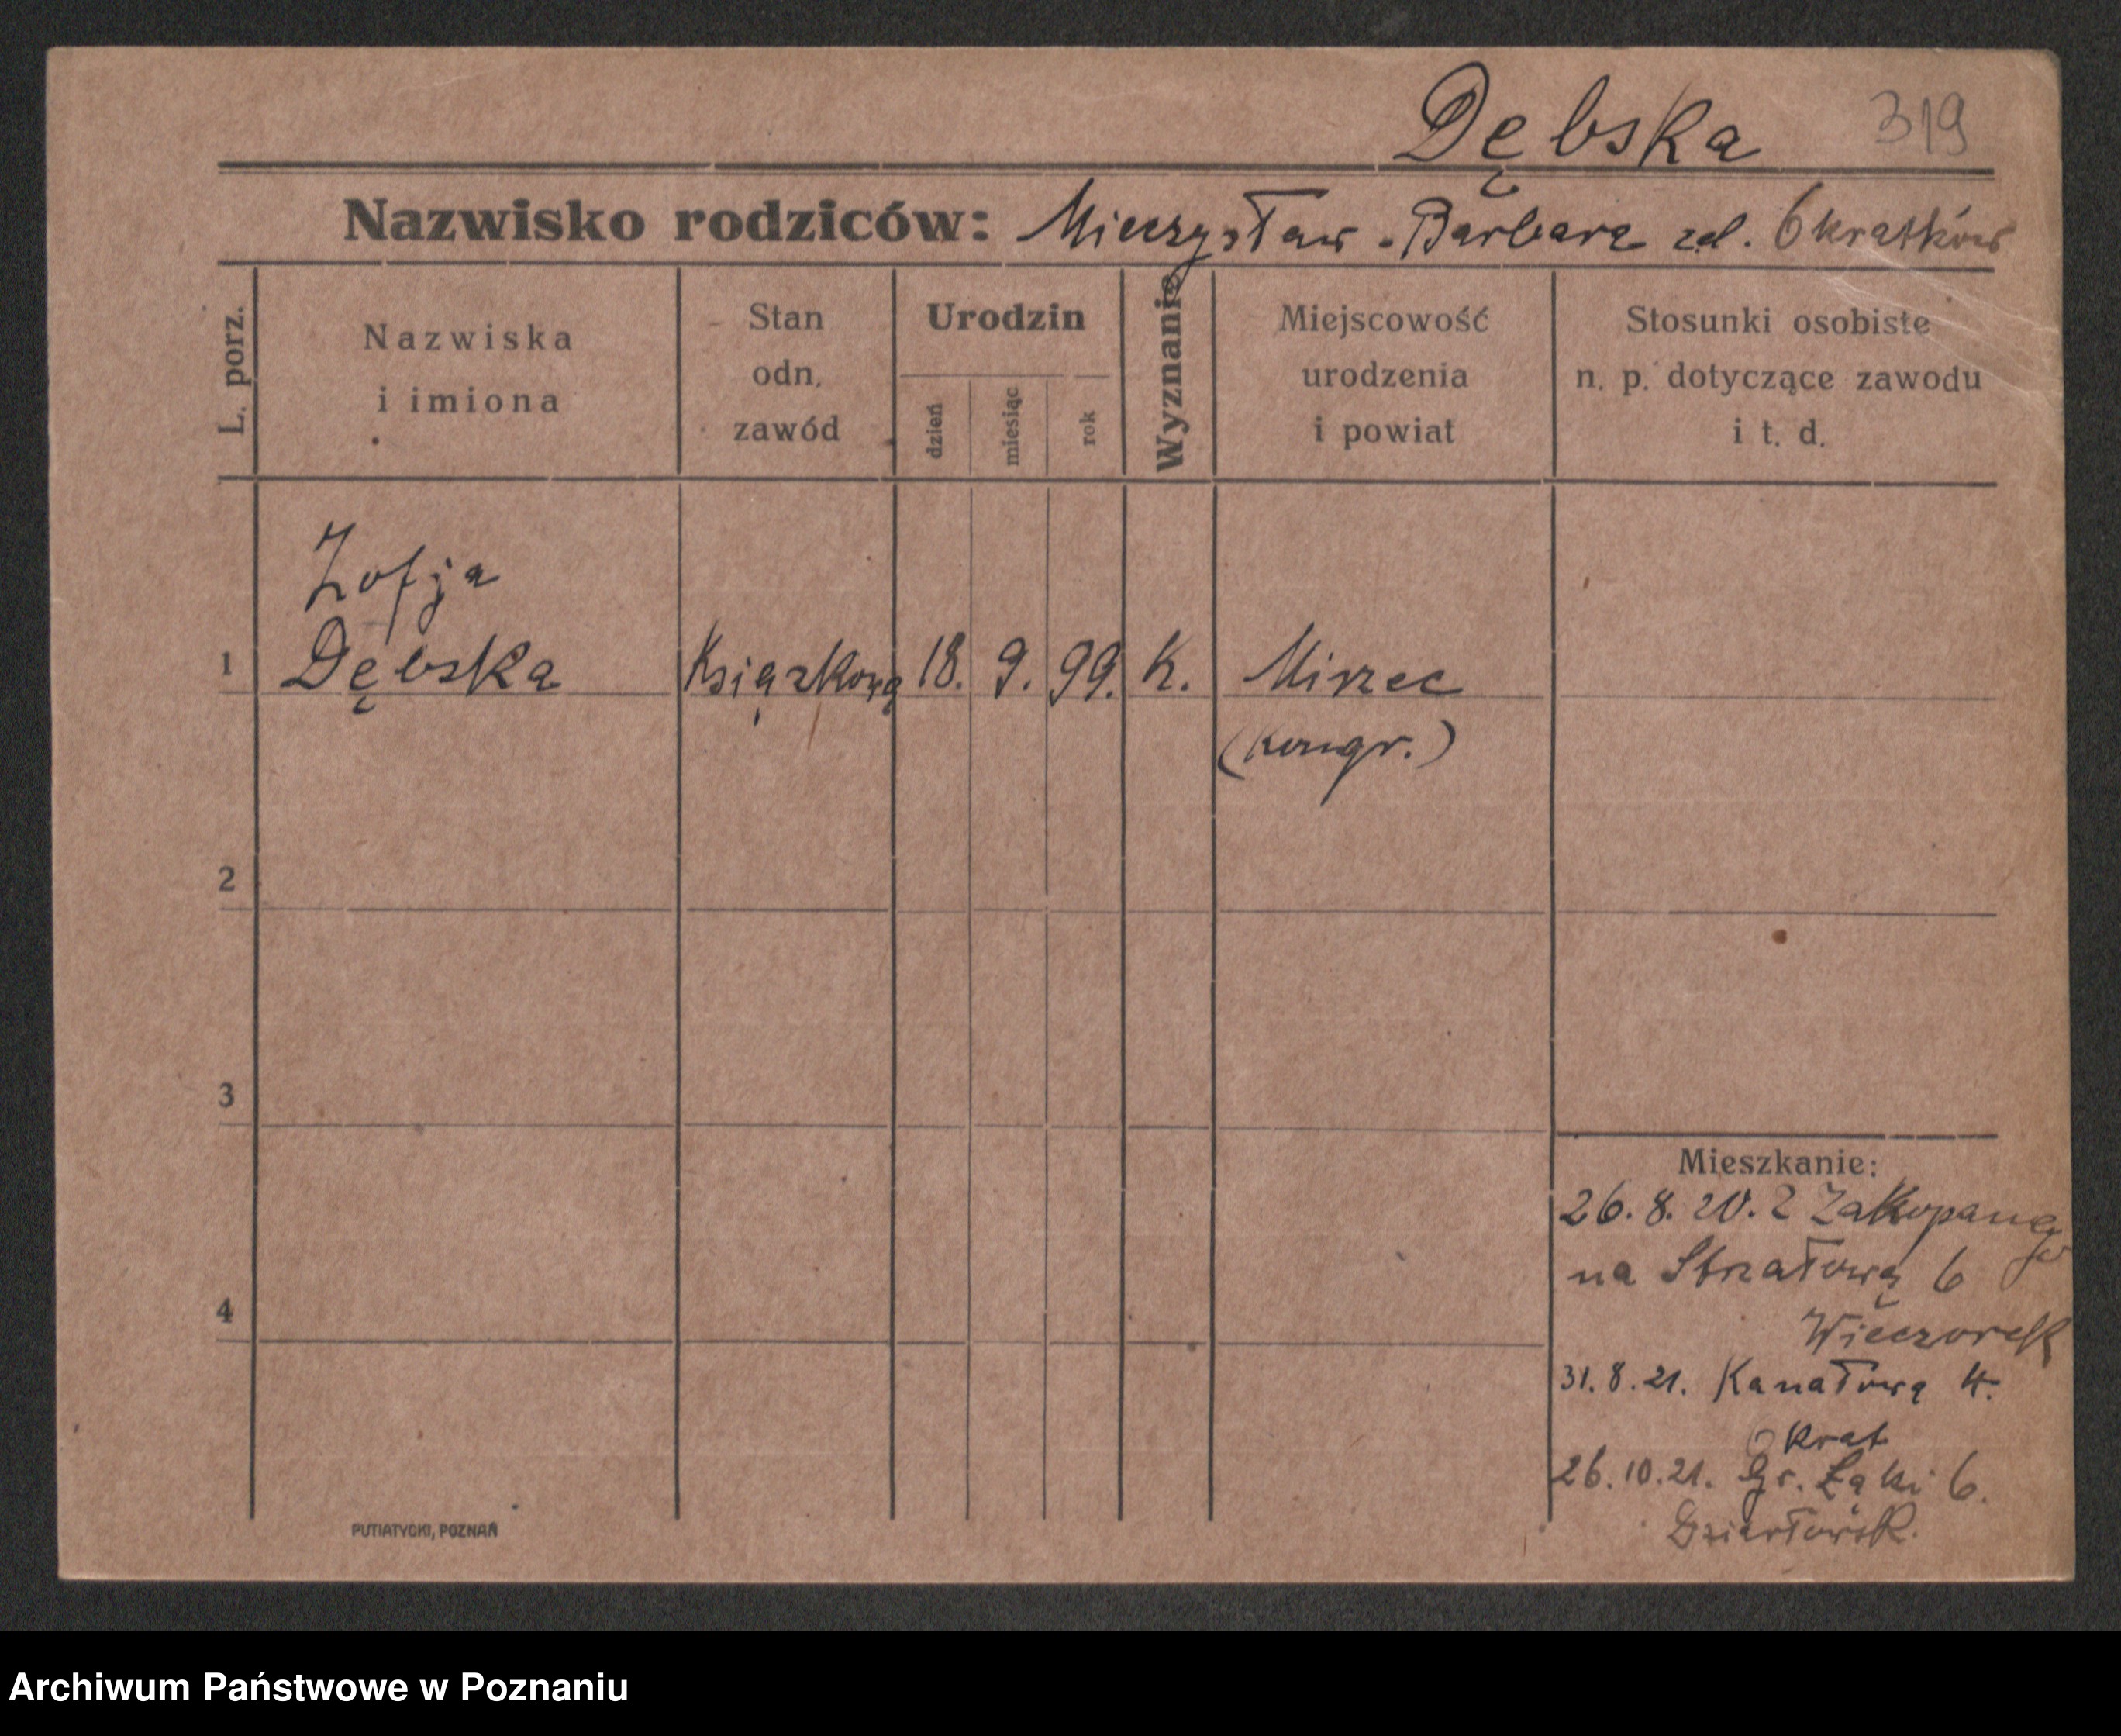 Dębska 319
Nazwisko rodziców: Mieczysław - Barbara zd.
L. porz.
Nazwiska
i imiona
Stan
odn.
zawód
Urodzin
dzień
miesiąc
rok
Wyznanie
Miejscowość
urodzenia
i powiat
Stosunki osobiste
n. p. dotyczące zawodu
i t. d.
Zofja
1 Dębska Książkową 18. 9. 99. K. Mirzec
(Kongr.)
2
3
4
Mieszkanie:
26.8.20. Z Zakopanego
na Strzałową 6
Wieczorek
31.8.21. Kanałowa 4.
Okrat
26.10.21. Gr. Łąki 6.
PUTIATYCKI, POZNAŃ
Archiwum Państwowe w Poznaniu